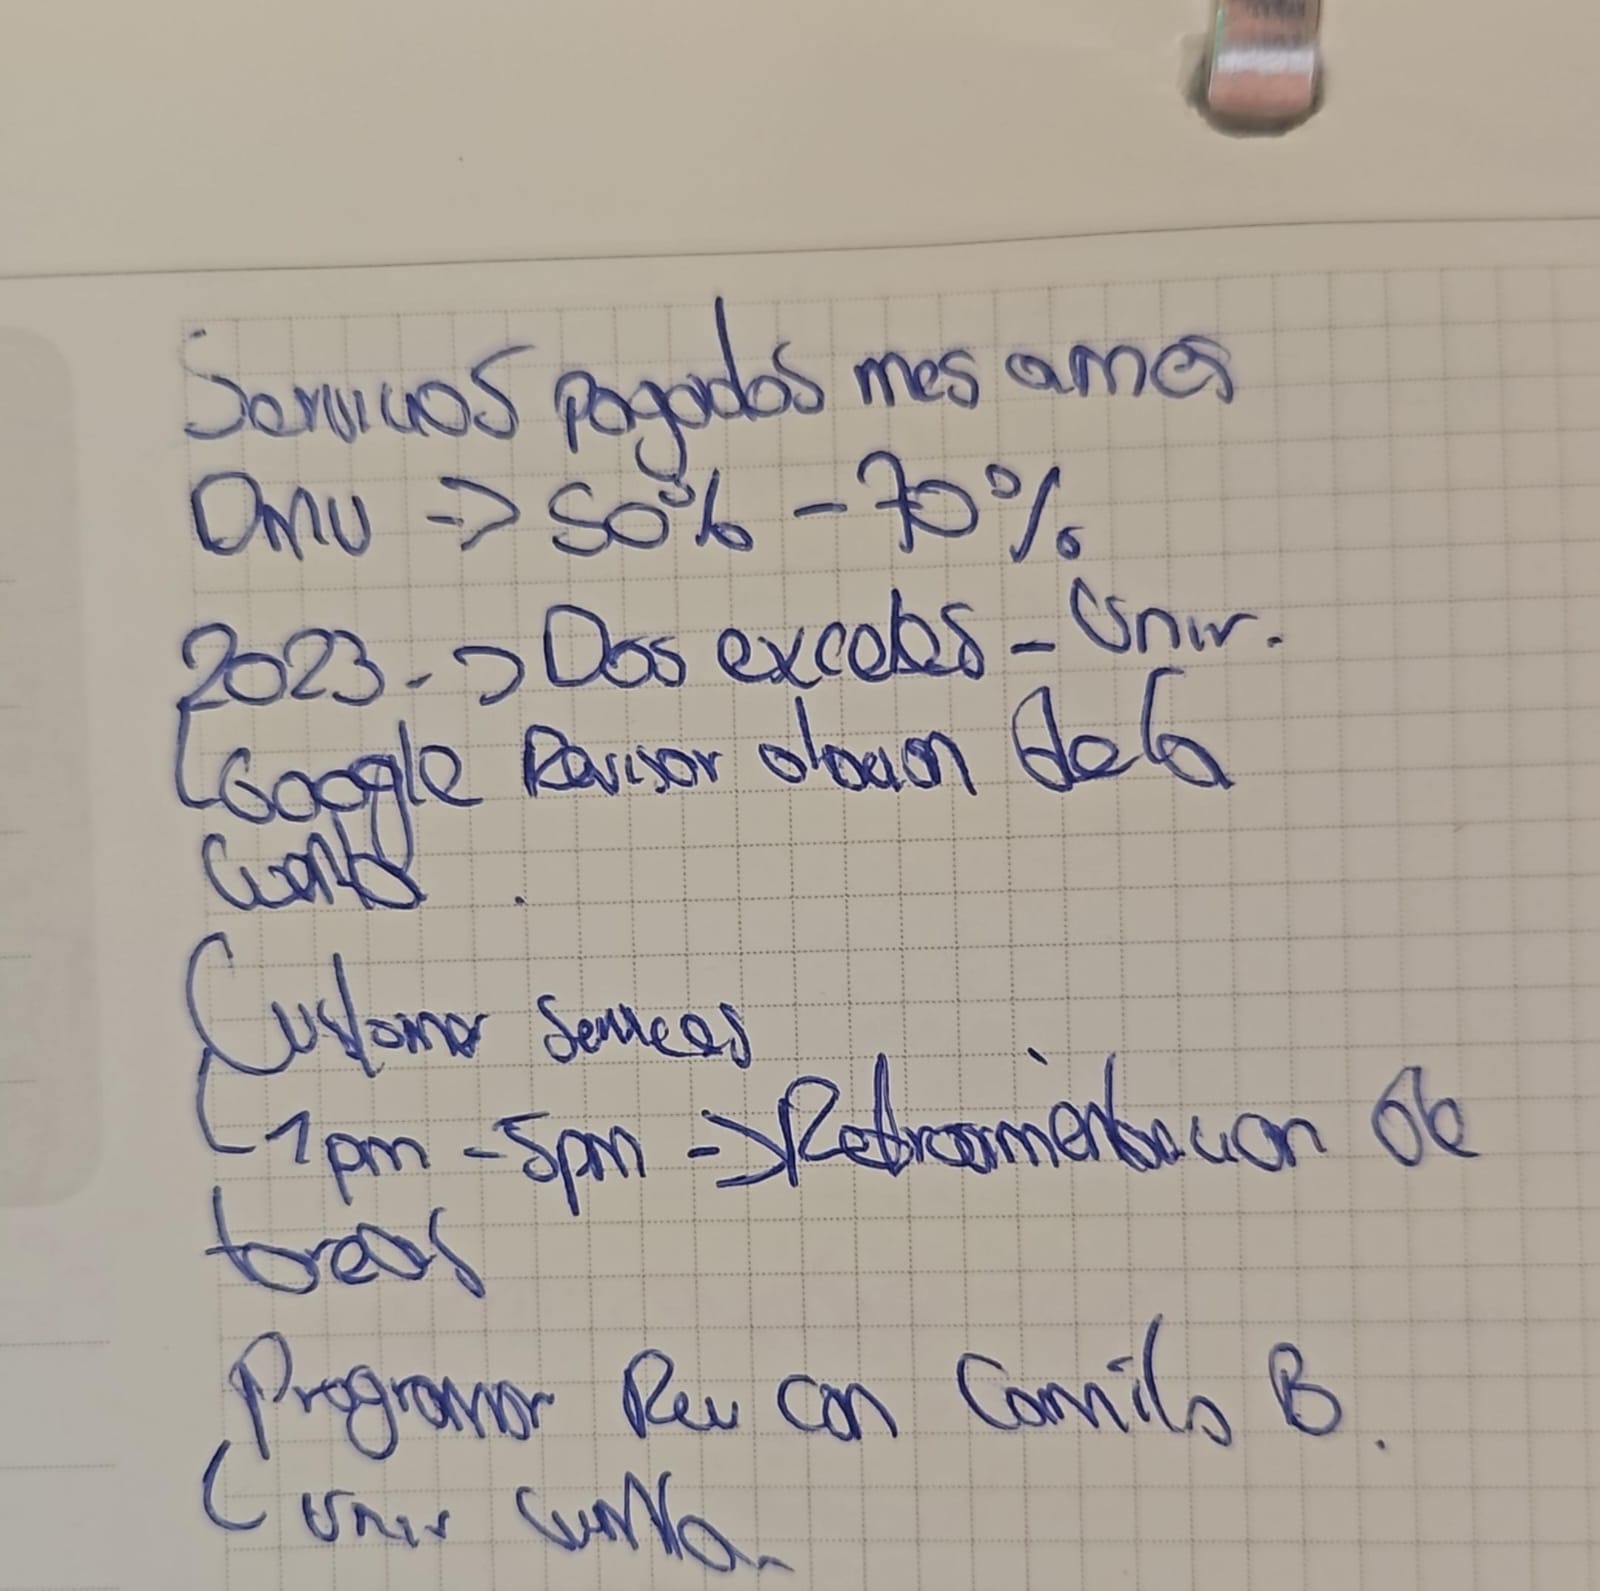 Servicios pagados mes a mes
DMV -> 50% - 70%
2023. -> Dos exceles - Unir.
Google Revisor de la
Cuenta.
Customer services
1pm - 5pm -> Retroalimentacion de
tareas
Programar Reu con Camilo B.
Unir cuenta.